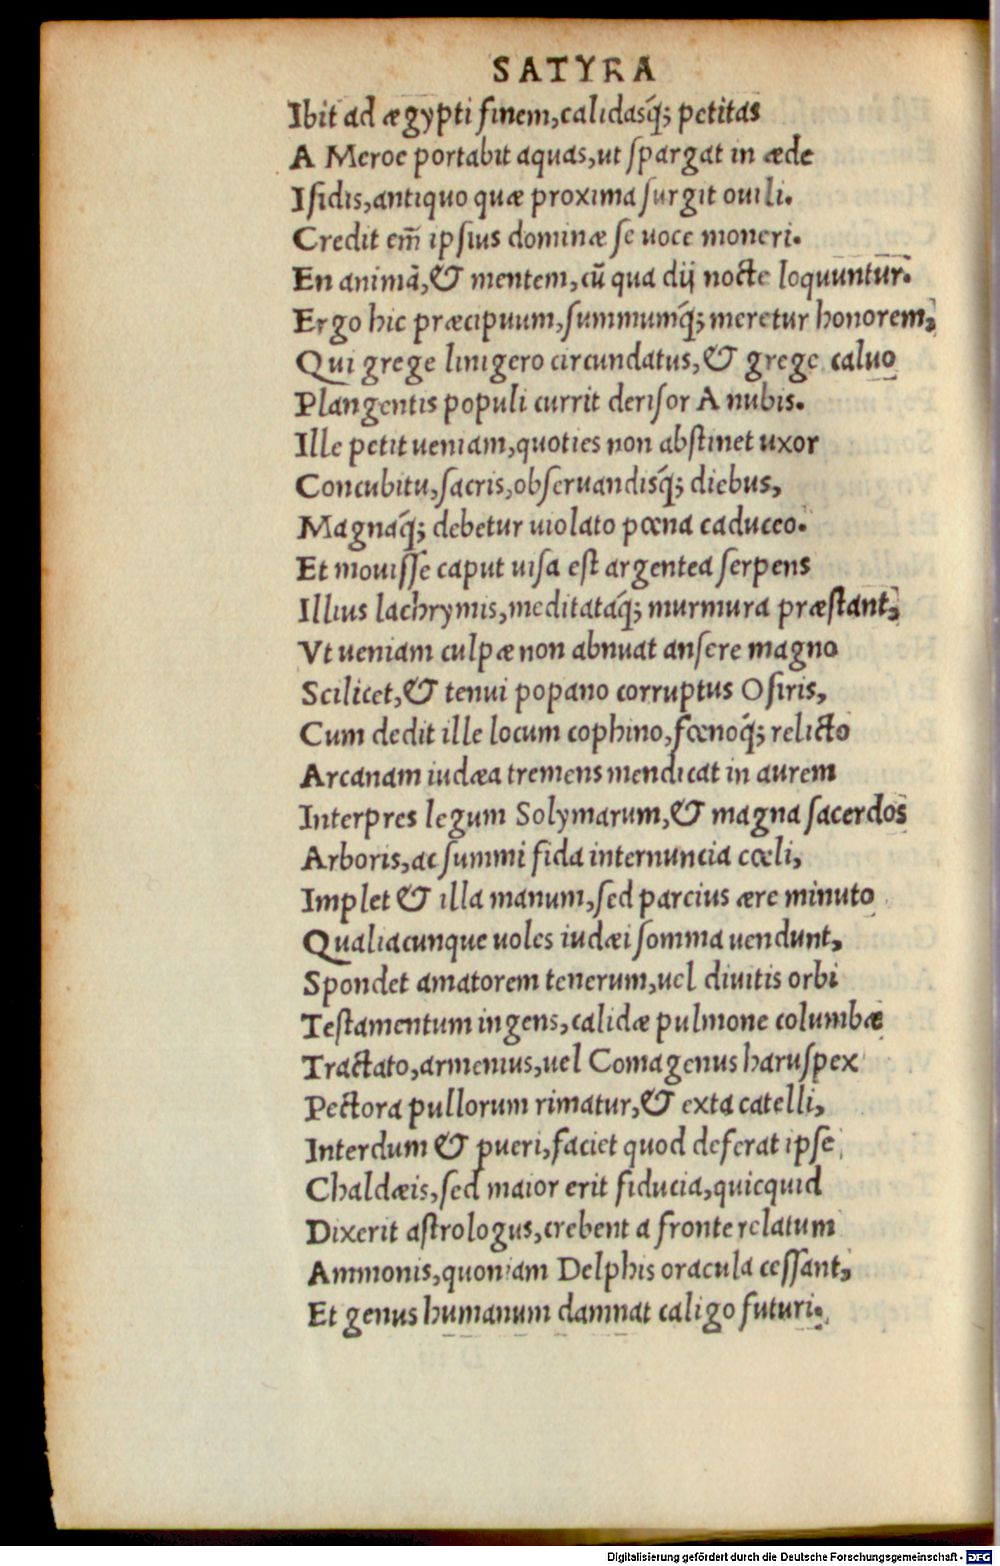 SATYRA
Ibit ad ægypti finem,calidasq́; petitas
A Meroe portabit aquas,ut spargat in æde
Isidis,antiquo quæ proxima surgit ouili.
Credit em̃ ipsius dominæ se uoce moneri.
En animã,& mentem,cũ qua dij nocte loquuntur.
Ergo hic præcipuum,summumq́; meretur honorem,
Qui grege linigero circundatus,& grege caluo
Plangentis populi currit derisor Anubis.
Ille petit ueniam,quoties non abstinet uxor
Concubitu,sacris,obseruandisq́; diebus,
Magnaq́; debetur uiolato pœna caduceo.
Et mouisse caput uisa est argentea serpens
Illius lachrymis,meditataq́; murmura præstant,
Vt ueniam culpæ non abnuat ansere magno
Scilicet,& tenui popano corruptus Osiris,
Cum dedit ille locum cophino,fœnoq́; relicto
Arcanam iudæa tremens mendicat in aurem
Interpres legum Solymarum,& magna sacerdos
Arboris,ac summi fida internuncia cœli,
Implet & illa manum,sed parcius ære minuto
Qualiacunque uoles iudæi somma uendunt,
Spondet amatorem tenerum,uel diuitis orbi
Testamentum ingens,calidæ pulmone columbæ
Tractato,armenius,uel Comagenus haruspex
Pectora pullorum rimatur,& exta catelli,
Interdum & pueri,faciet quod deferat ipse
Chaldæis,sed maior erit fiducia,quicquid
Dixerit astrologus,crebent a fronte relatum
Ammonis,quoniam Delphis oracula cessant,
Et genus humanum damnat caligo futuri.
Digitalisierung gefördert durch die Deutsche Forschungsgemeinschaft - DFG